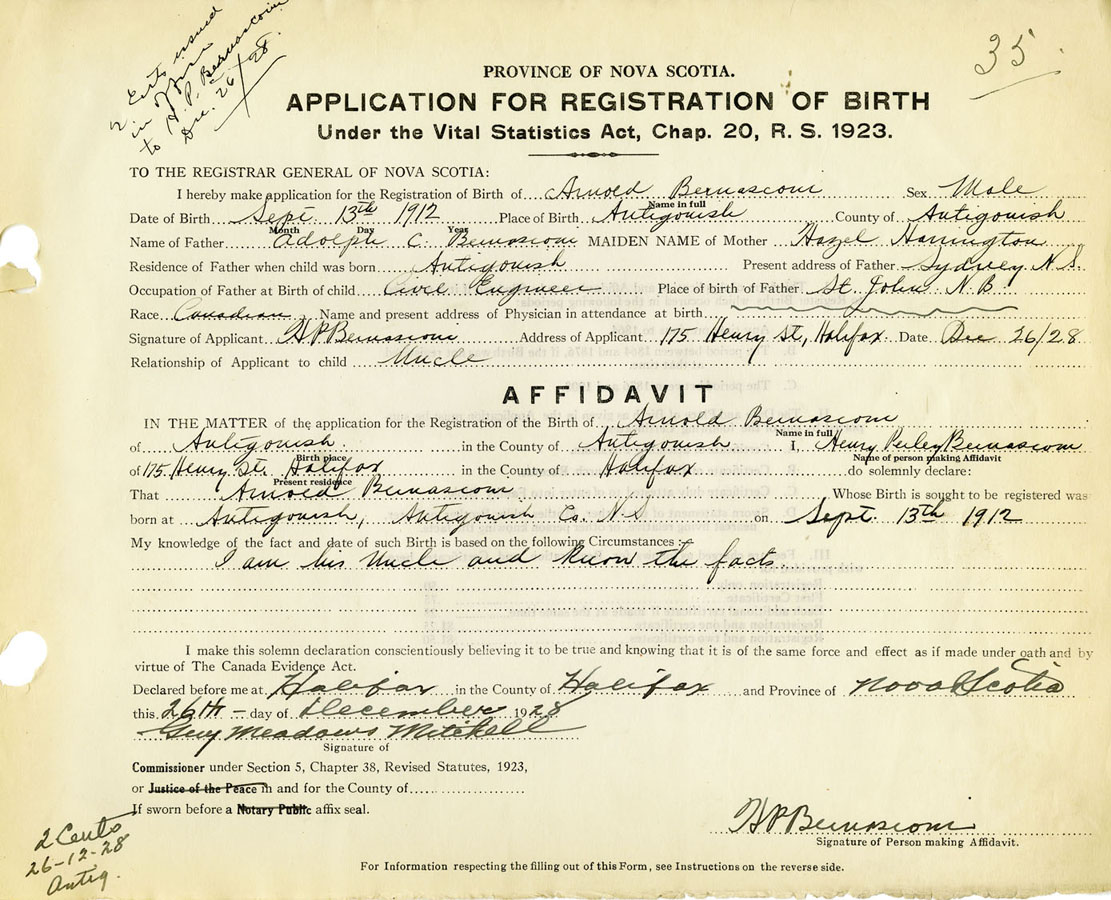 2 Certs issued
in office
to H. P. Bernasconi
Dec. 26/28.
35
PROVINCE OF NOVA SCOTIA.
APPLICATION FOR REGISTRATION OF BIRTH
Under the Vital Statistics Act, Chap. 20, R. S. 1923.
TO THE REGISTRAR GENERAL OF NOVA SCOTIA:
I hereby make application for the Registration of Birth of Arnold Bernasconi Sex Male
Name in full
Date of Birth Sept 13th 1912 Place of Birth Antigonish County of Antigonish
Month Day Year
Name of Father Adolph C. Bernasconi MAIDEN NAME of Mother Hazel Harrington
Residence of Father when child was born Antigonish Present address of Father Sydney N.S.
Occupation of Father at Birth of child Civil Engineer Place of birth of Father St. John N.B.
Race Canadian Name and present address of Physician in attendance at birth
Signature of Applicant H P Bernasconi Address of Applicant 175 Henry St, Halifax Date Dec 26/28
Relationship of Applicant to child Uncle
AFFIDAVIT
IN THE MATTER of the application for the Registration of the Birth of Arnold Bernasconi
Name in full
of Antigonish. in the County of Antigonish I, Henry Perley Bernasconi
Birth place Name of person making Affidavit
of 175 Henry St. Halifax in the County of Halifax do solemnly declare:
Present residence
That Arnold Bernasconi Whose Birth is sought to be registered was
born at Antigonish, Antigonish Co. N.S on Sept. 13th 1912
My knowledge of the fact and date of such Birth is based on the following Circumstances:
I am his Uncle and know the facts.
I make this solemn declaration conscientiously believing it to be true and knowing that it is of the same force and effect as if made under oath and by
virtue of The Canada Evidence Act.
Declared before me at Halifax in the County of Halifax and Province of Nova Scotia
this 26th day of December 1928
Guy Meadows Mitchell
Signature of
Commissioner under Section 5, Chapter 38, Revised Statutes, 1923,
or Justice of the Peace in and for the County of
If sworn before a Notary Public affix seal.
H P Bernasconi
Signature of Person making Affidavit.
2 Certs
26-12-28
Antig.
For Information respecting the filling out of this Form, see Instructions on the reverse side.